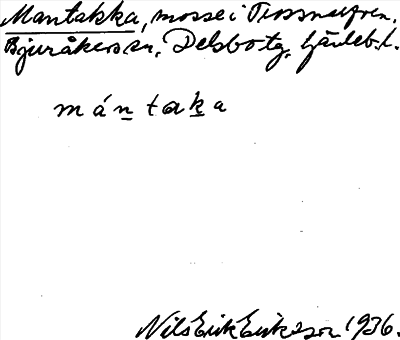 Mantakka, mosse i Trossnarfven,
Bjuråkers sn, Delsbo tg, Gävleb. l.
mántaka
Nils Erik Eriksson 1936.